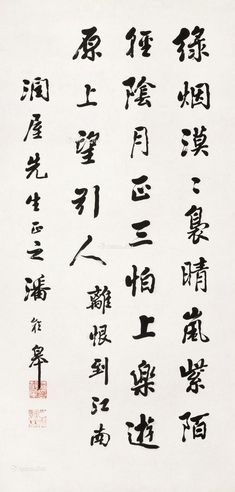 綠烟漠〻裊晴嵐紫陌
徑陰月正三怕上樂遊
原上望引人離恨到江南
润屋先生正之潘龄皋